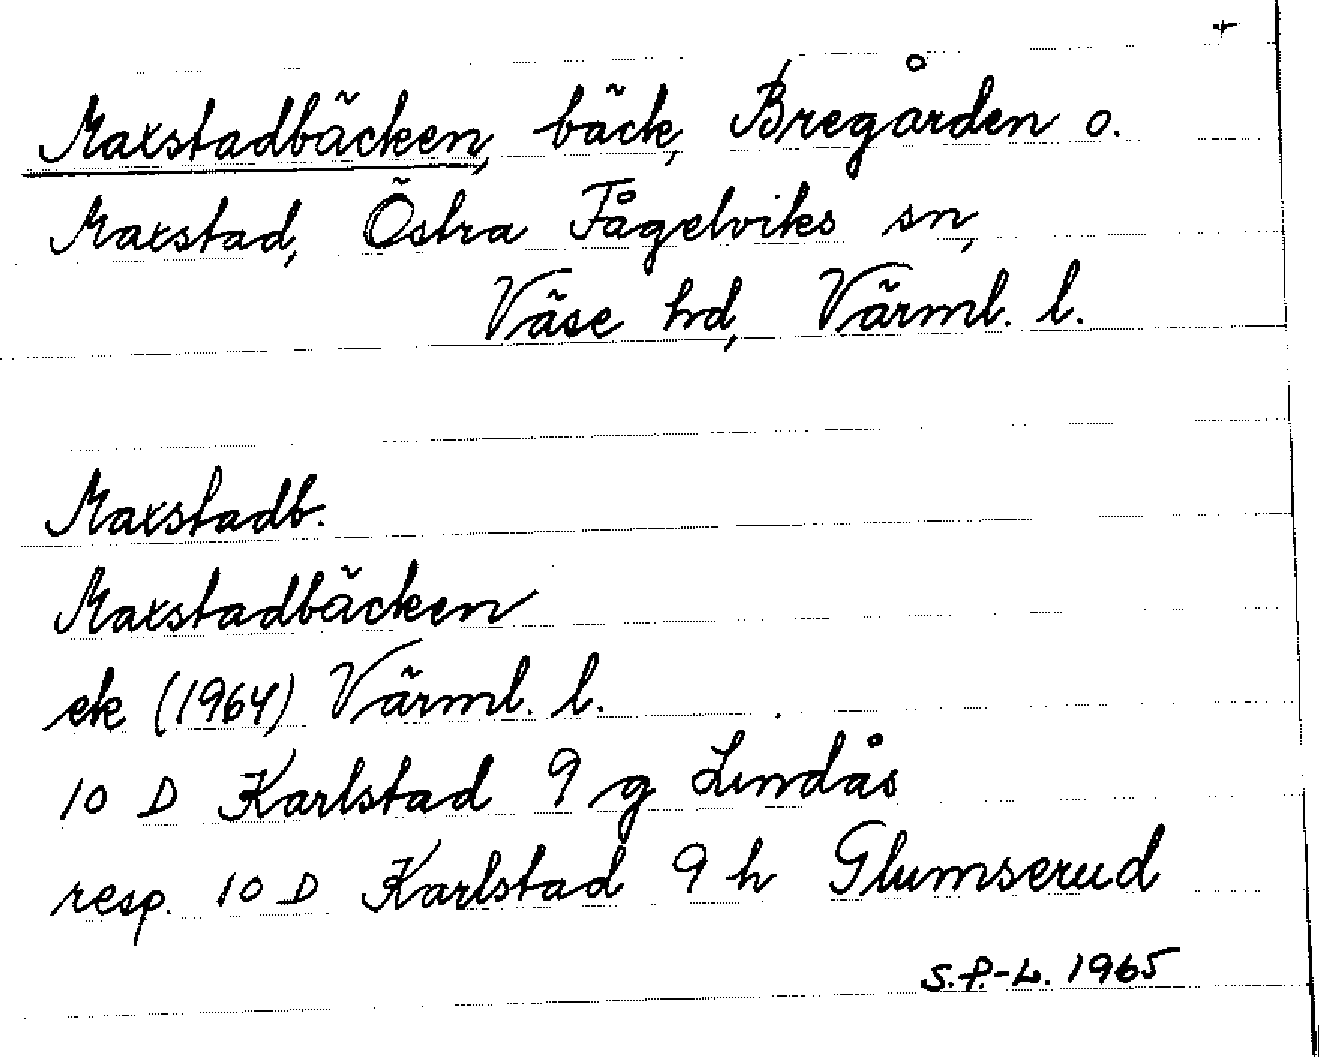 +
Maxstadbäcken, bäck, Bregården o.
Maxstad, Östra Fågelviks sn,
Väse hd, Värml. l.
Maxstadb.
Maxstadbäcken
ek (1964) Värml. l.
10 D Karlstad 9 g Lindås
resp. 10 D Karlstad 9 h Glumserud
S.P.-L. 1965